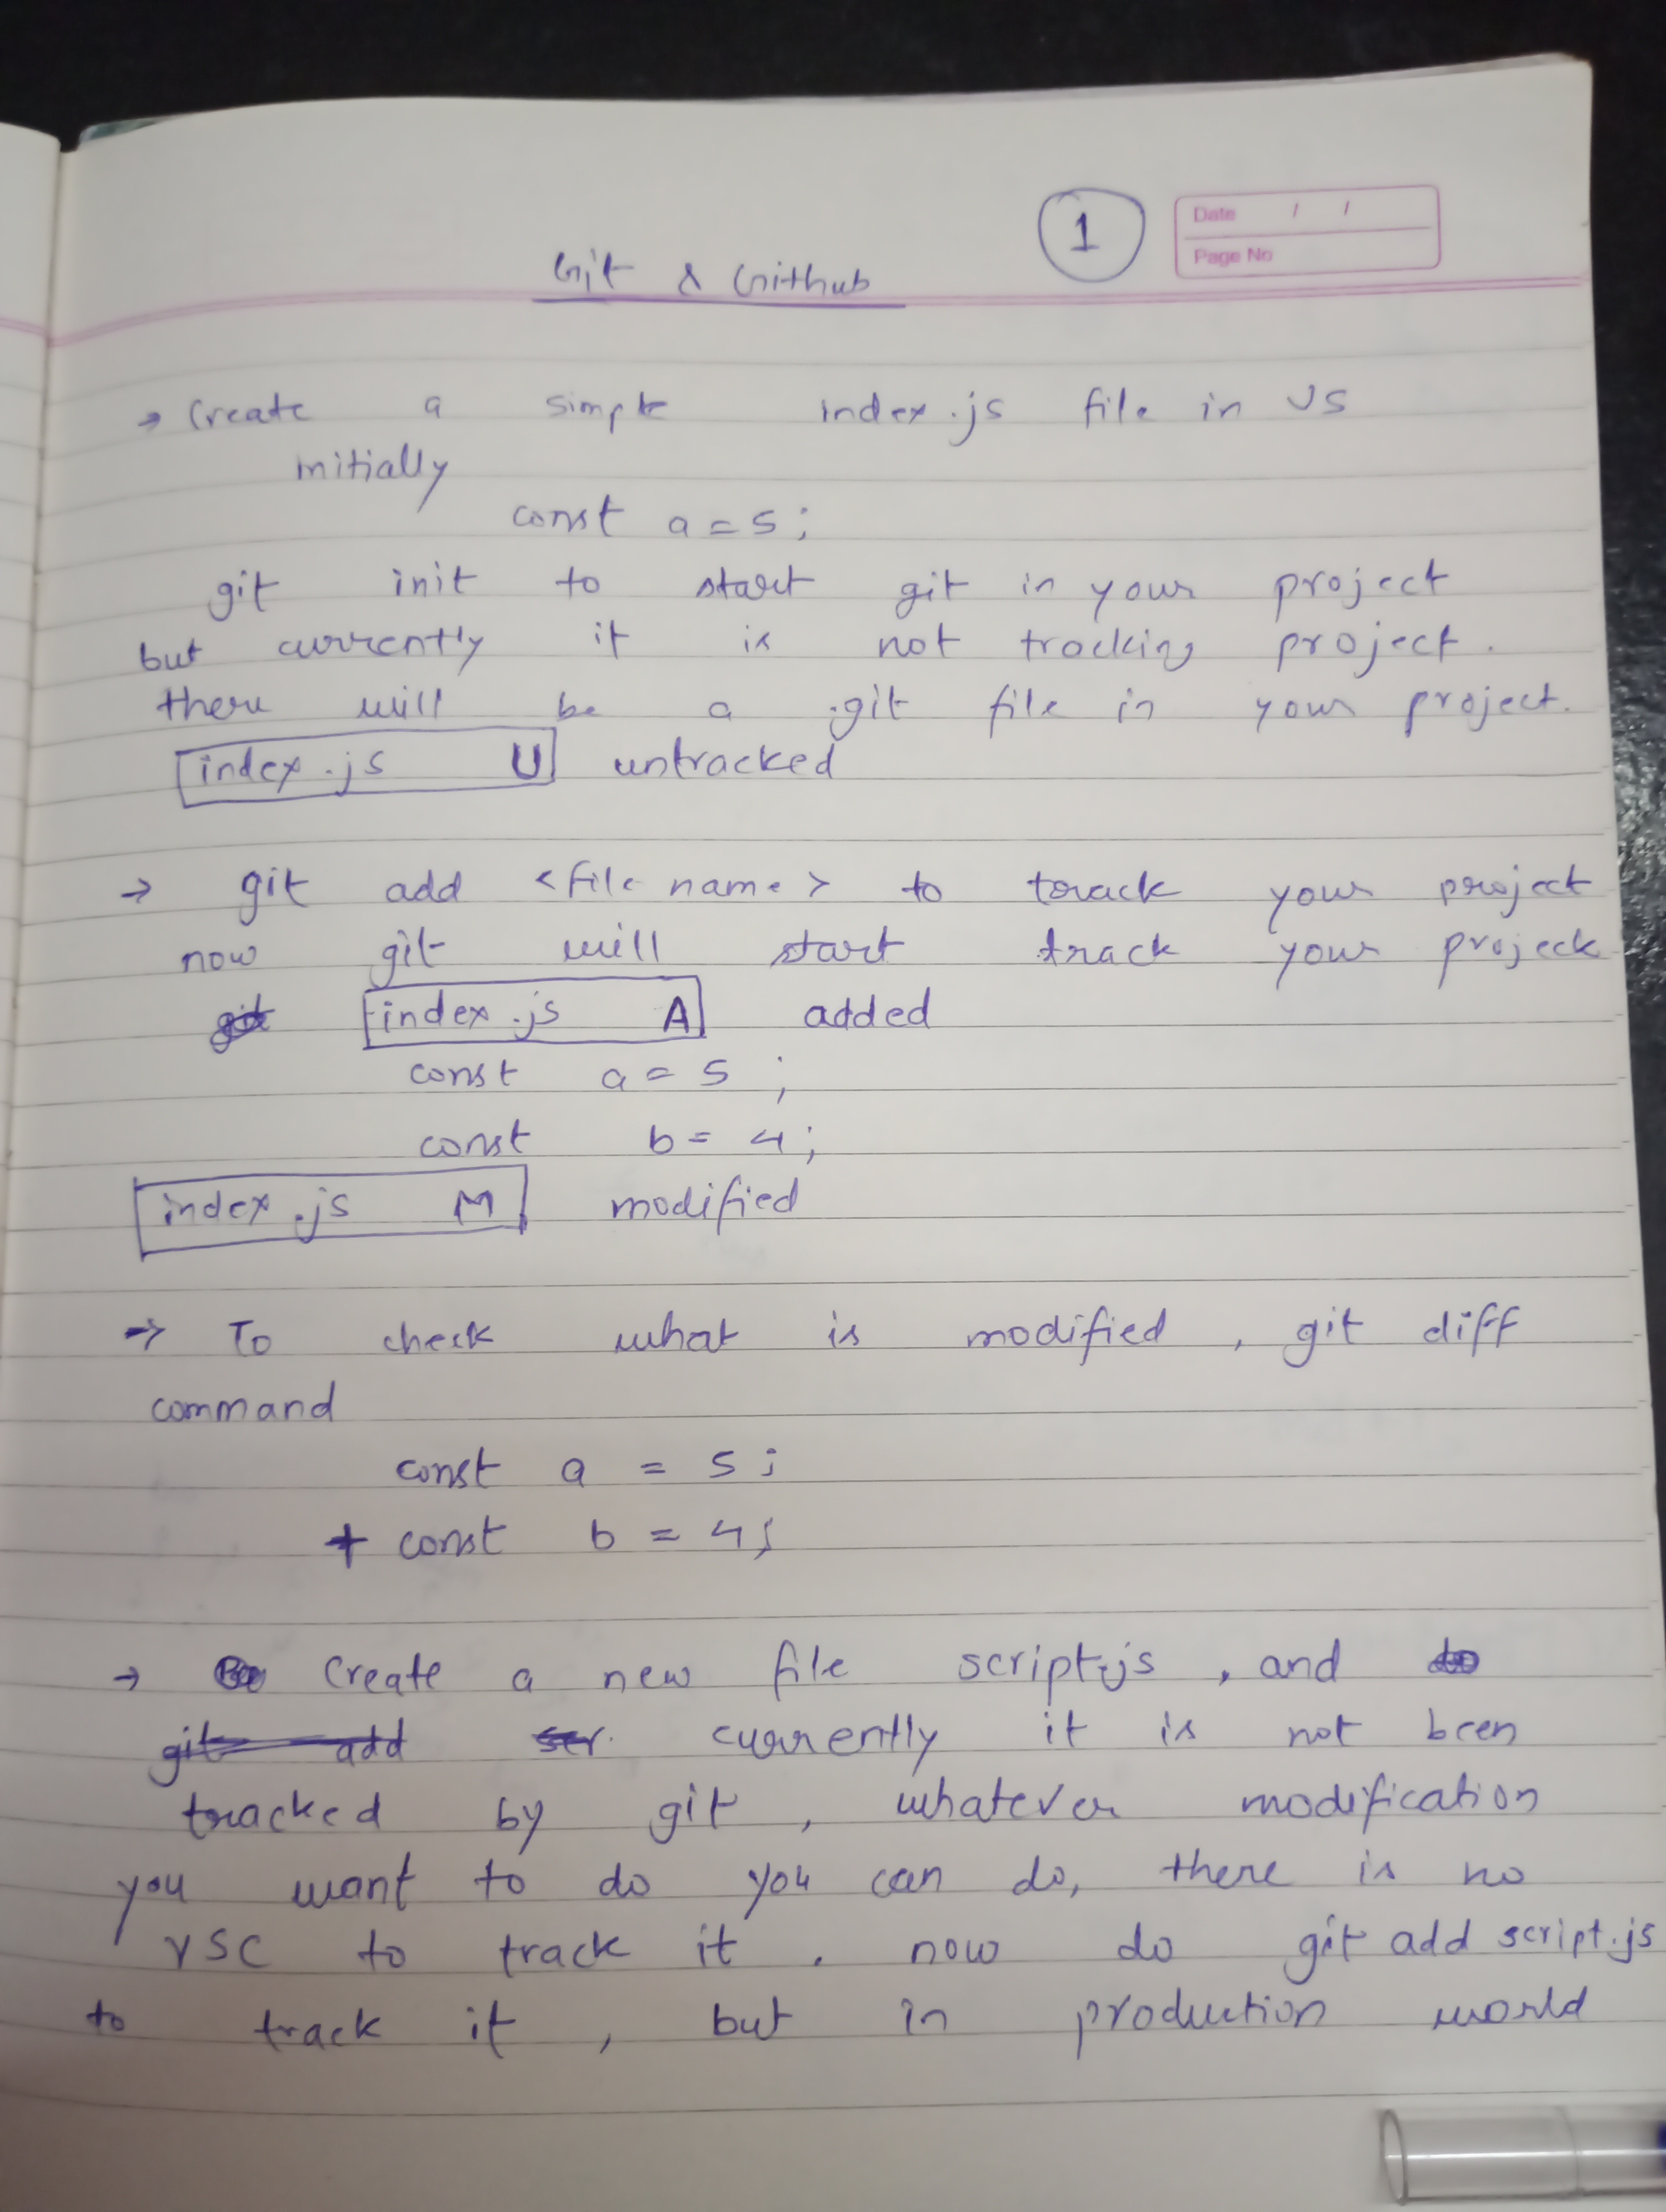 1
Date / /
Page No
Git & Github
→ Create a simple index.js file in JS
initially
const a = 5;
git init to start git in your project
but currently it is not tracking project.
there will be a .git file in your project.
index.js U untracked
→ git add <file name> to track your project
now git will start track your project
git index.js A added
const a = 5;
const b = 4;
index.js M modified
→ To check what is modified, git diff
command
const a = 5;
+ const b = 4;
→ Create a new file script.js, and do
git add scr. currently it is not been
tracked by git, whatever modification
you want to do you can do, there is no
VSC to track it. now do git add script.js
to track it, but in production world